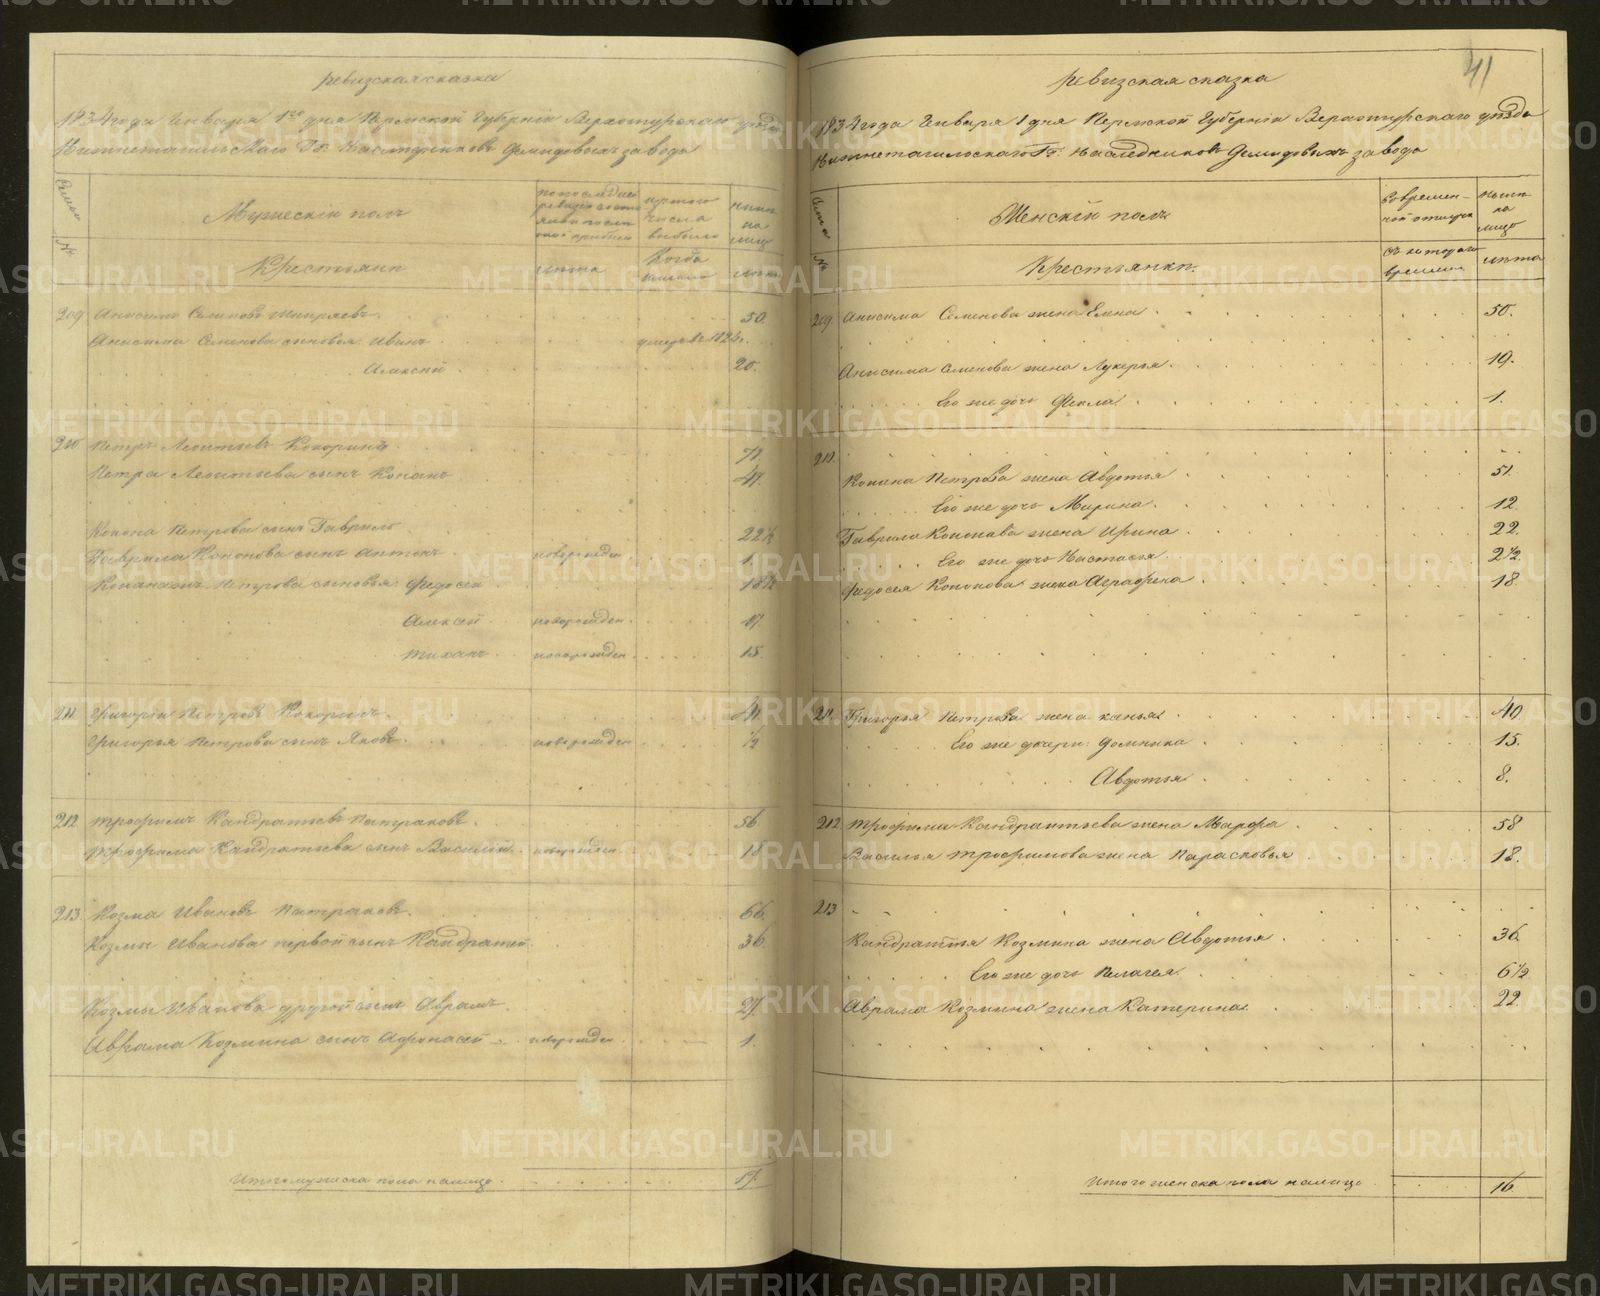 Ревизская сказка
1834 года Января 1го дня Пермской Губернiи Верхотурскаго уѣзда
Нижнетагильскаго Гг: Наслѣдниковъ Демидовыхъ завода
Семьи
Мужескiй полъ
лѣта
Когда
на лицо
лѣта
№
Крестьяне
209 Анисимъ Семеновъ 50.
Анисима Семенова сыновья Иванъ умеръ въ 182
Алексѣй 20.
210 Петръ Леонтьевъ Кокоринъ 71.
Петра Леонтьева сынъ Кононъ 47.
Конона Петрова сынъ Гаврило 22½
Гаврила Кононова сынъ Антонъ новорожден. 1.
Петрова сыновья Федосей 18½
Алексей новорожден. 17.
Тиханъ новорожден. 15.
211 Григорiй Петровъ Кокоринъ 41.
Григорья Петрова сынъ Яковъ новорожден ½
212 Трофимъ Кандратьевъ Патраковъ 56
Трофима Кандратьева сынъ Василiй новорожден. 18
213 Козма Ивановъ Патраковъ 66.
Козмы Иванова первой сынъ Кандратей 36
Козмы Иванова другой сынъ Аврамъ 27.
Аврама Козмина сынъ Афонасей новорожден 1.
Итого мужеска пола налицо 17.
41
Ревизская сказка
1834 года Января 1 дня Пермской Губернiи Верхотурскаго уѣзда
Нижнетагильскаго Гг: Наследниковъ Демидовыхъ завода
Семьи
Женскiй полъ
Во времен-
ной отлучке
Нынѣ
на
лицо
№
Крестьянки.
съ котораго
времени
лѣта
209 Анисима Семенова жена Елена 50.
Анисима Семенова жена Лукерья 19.
Его же дочь Фекла 1.
210.
Конона Петрова жена Авдотья 51.
Его же дочь Марина 12.
Гаврила Кононова жена Ирина 22.
Его же дочь Настасья 2½.
Федосея Кононова жена Аграфена 18.
211. Григорья Петрова жена 40.
Его же дочери: Домника 15.
Авдотья 8.
212. Трофима Кандратьева жена Марфа 58
Василья Трофимова жена Парасковья 18.
213
Кандратья Козмина жена Авдотья 36.
Его же дочь Пелагея 6½
Аврама Козмина жена Катерина 22.
Итого женска пола налицо 16.
METRIKI.GASO-URAL.RU